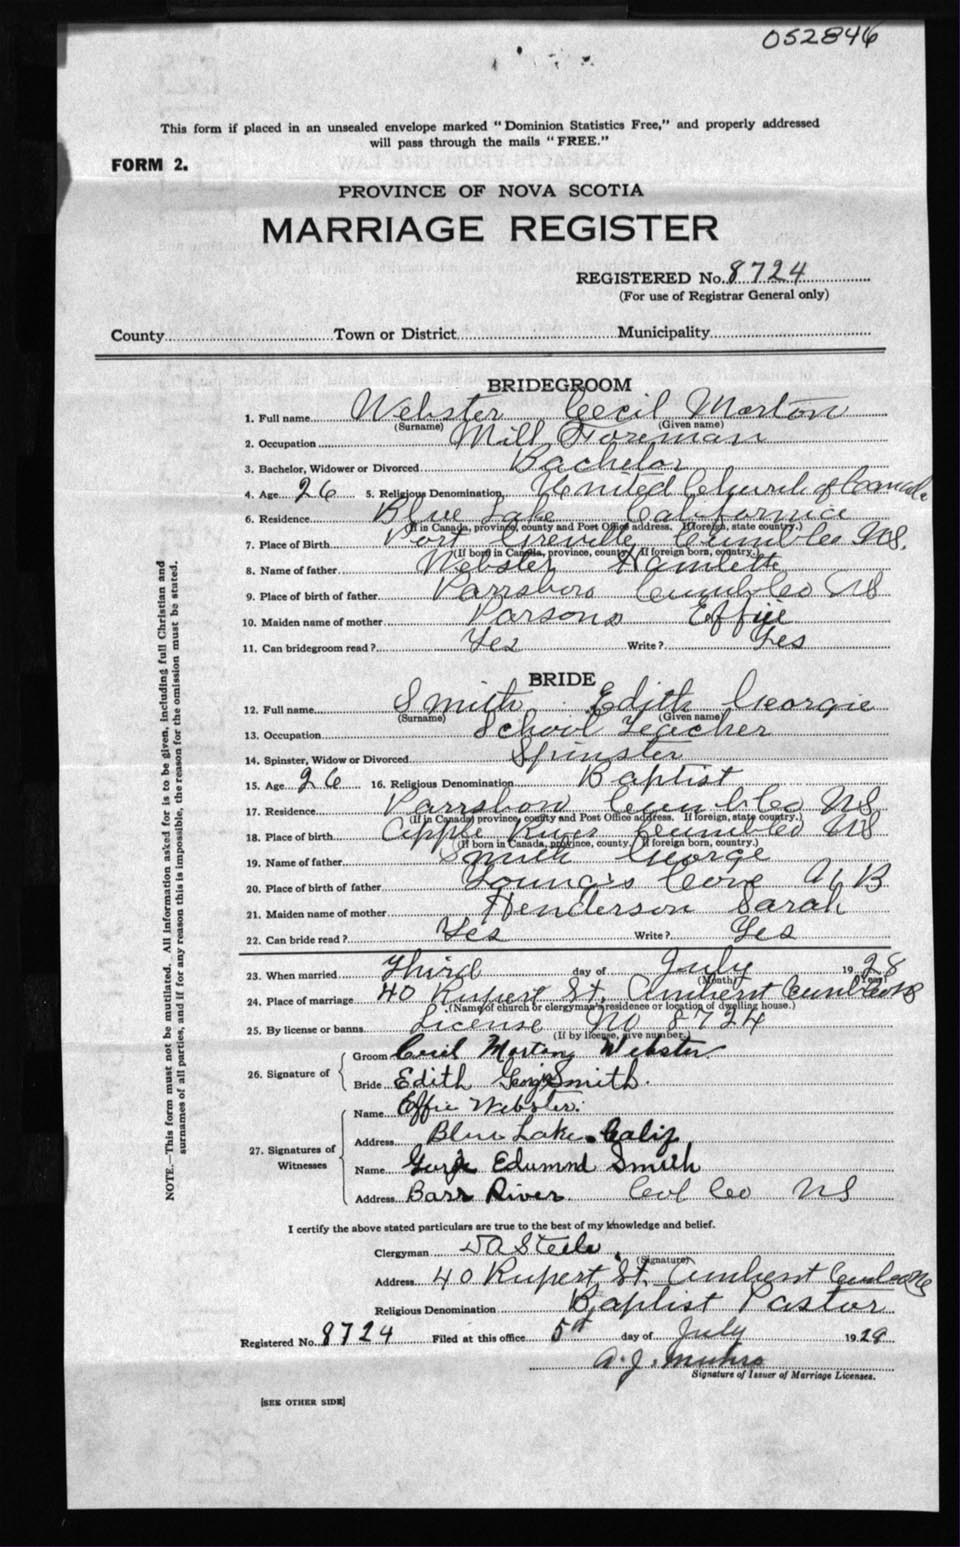 052846
This form if placed in an unsealed envelope marked "Dominion Statistics Free," and properly addressed
will pass through the mails "FREE."
FORM 2.
PROVINCE OF NOVA SCOTIA
MARRIAGE REGISTER
REGISTERED No. 8724
(For use of Registrar General only)
County Town or District Municipality
BRIDEGROOM
1. Full name Webster Cecil Morton
(Surname) (Given name)
2. Occupation Mill Foreman
3. Bachelor, Widower or Divorced Bachelor
4. Age 26 5. Religious Denomination United Church of Canada
6. Residence Blue Lake California
(If in Canada, province, county and Post Office address. If foreign, state country.)
7. Place of Birth Port Greville Cumb Co NS.
(If born in Canada, province, county. If foreign born, country.)
8. Name of father Webster Hamlett
9. Place of birth of father Parrsboro Cumb Co NS
10. Maiden name of mother Parsons Effie
11. Can bridegroom read? Yes Write? Yes
BRIDE
12. Full name Smith Edith Georgie
(Surname) (Given name)
13. Occupation School Teacher
14. Spinster, Widow or Divorced Spinster
15. Age 26 16. Religious Denomination Baptist
17. Residence Parrsboro Cumb Co NS
(If in Canada, province, county and Post Office address. If foreign, state country.)
18. Place of birth Apple River Cumb Co NS
(If born in Canada, province, county. If foreign born, country.)
19. Name of father Smith George
20. Place of birth of father Young's Cove N B
21. Maiden name of mother Henderson Sarah
22. Can bride read? Yes Write? Yes
23. When married Third day of July 1928
(Month) (Year)
24. Place of marriage 40 Rupert St. Amherst Cumb Co NS
(Name of church or clergyman's residence or location of dwelling house.)
25. By license or banns License No 8724
(If by license, give number.)
26. Signature of Groom Cecil Morton Webster
Bride Edith Georgie Smith.
27. Signatures of Witnesses Name Effie Webster.
Address Blue Lake Calif,
Name George Edumnd Smith
Address Bass River Col Co NS
I certify the above stated particulars are true to the best of my knowledge and belief.
Clergyman D A Steele
(Signature)
Address 40 Rupert St. Amherst Cumb Co NS
Religious Denomination Baptist Pastor
Registered No. 8724 Filed at this office 5th day of July 1928
A. J. Munro
Signature of Issuer of Marriage Licenses.
[SEE OTHER SIDE]
NOTE.—This form must not be mutilated. All information asked for is to be given, including full Christian and
surnames of all parties, and if for any reason this is impossible, the reason for the omission must be stated.